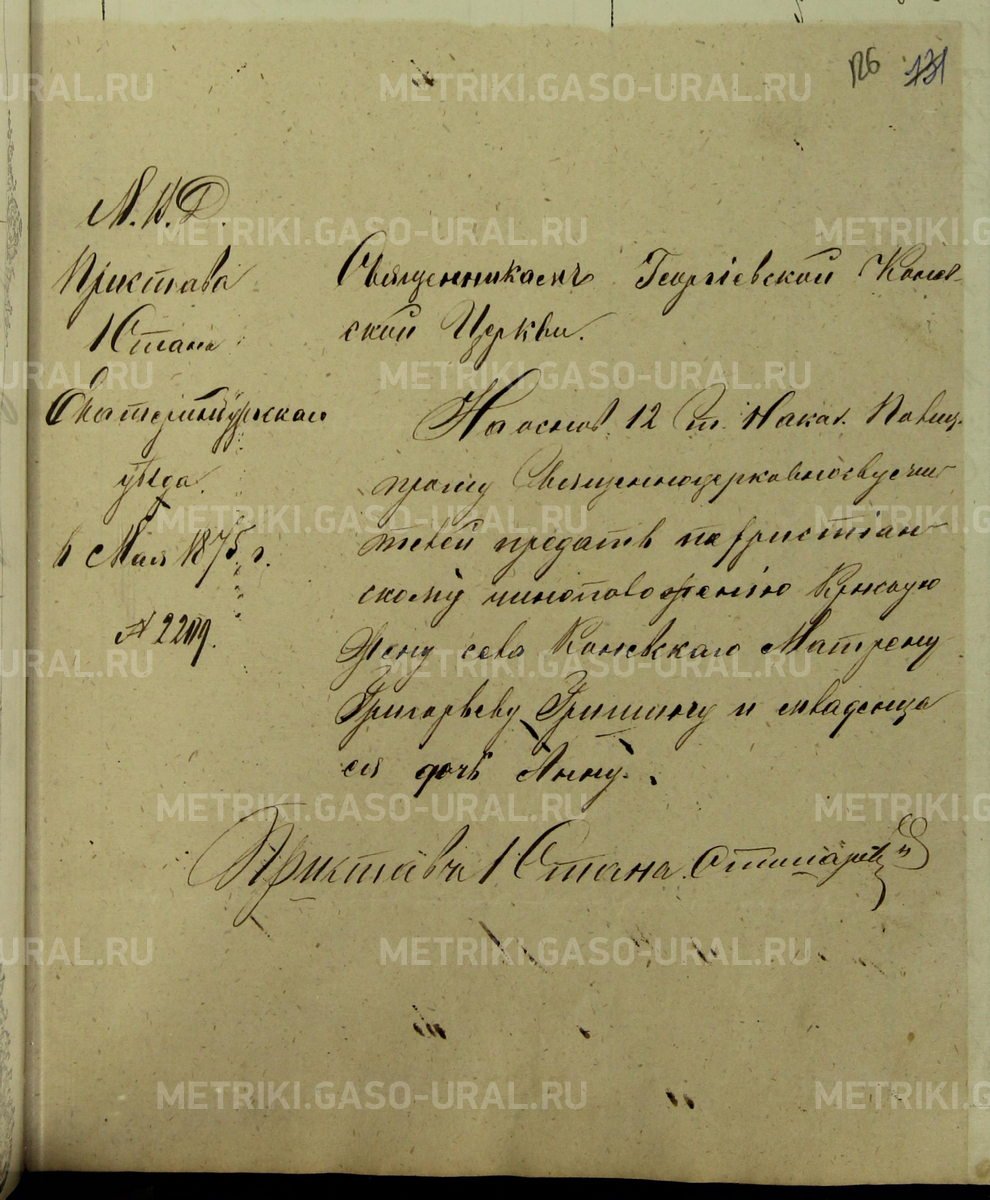 126 131
М. В. Д.
Пристава
1 Стана
Екатеринбургскаго
уѣзда.
6 Мая 1875 г.
№ 2209.
Священникамъ Георгіевской Конев-
ской Церкви.
На основ. 12 Наказ. Полиц.
прошу Священноцерковнослужи-
телей предать по христіан-
скому чиноположенію
жену села Коневскаго Матрену
Григорьеву Гришину и младенца
ея дочь Анну.
Приставъ 1 Стана
METRIKI.GASO-URAL.RU